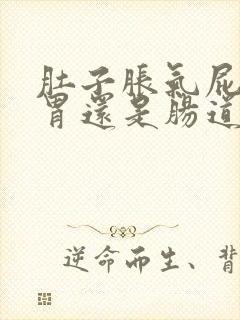 肚子脹氣屁
胃還是腸道
逆命而生、背